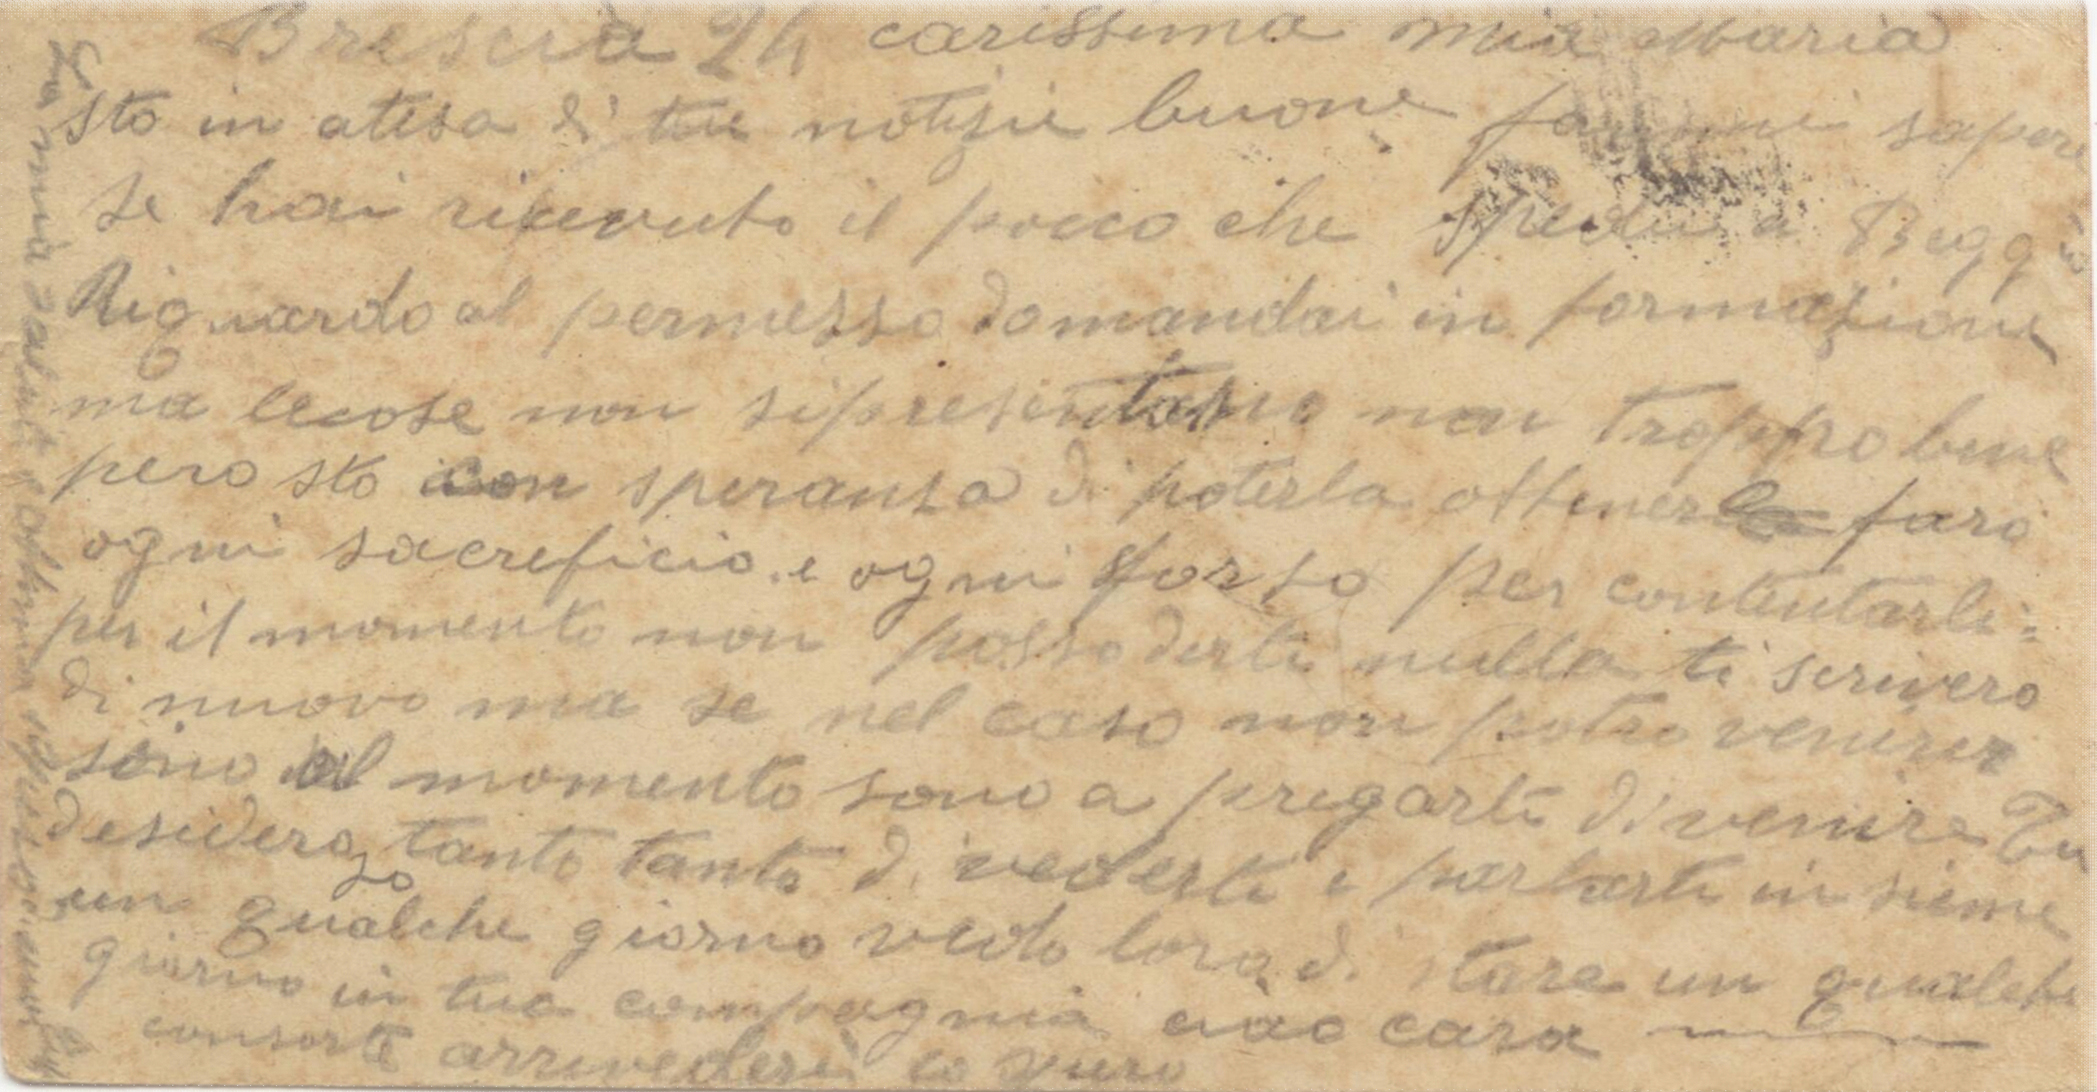 Brescia 24 carissima mia Maria
sto in atesa di tue notizie buone fammi sapere
se hai ricevuto il pacco che spedii a Begg
Riguardo al permesso domandai in formazione
ma lecose non sipresentano non troppo bene
pero sto con speranza di poterla ottenerla faro
ogni sacreficio e ogni sforso per contentarti:
per il momento non posso dirti nulla ti scrivero
di nuovo ma se nel caso non potro venirer
sino al momento sono a pregarti di venire Tu
desidero tanto tanto di vederti e parlarti in sieme
un qualche giorno vedo lora di stare un qualche
giorno in tua compagnia ciao cara
consorte arrivederci
La mia salute e ottima